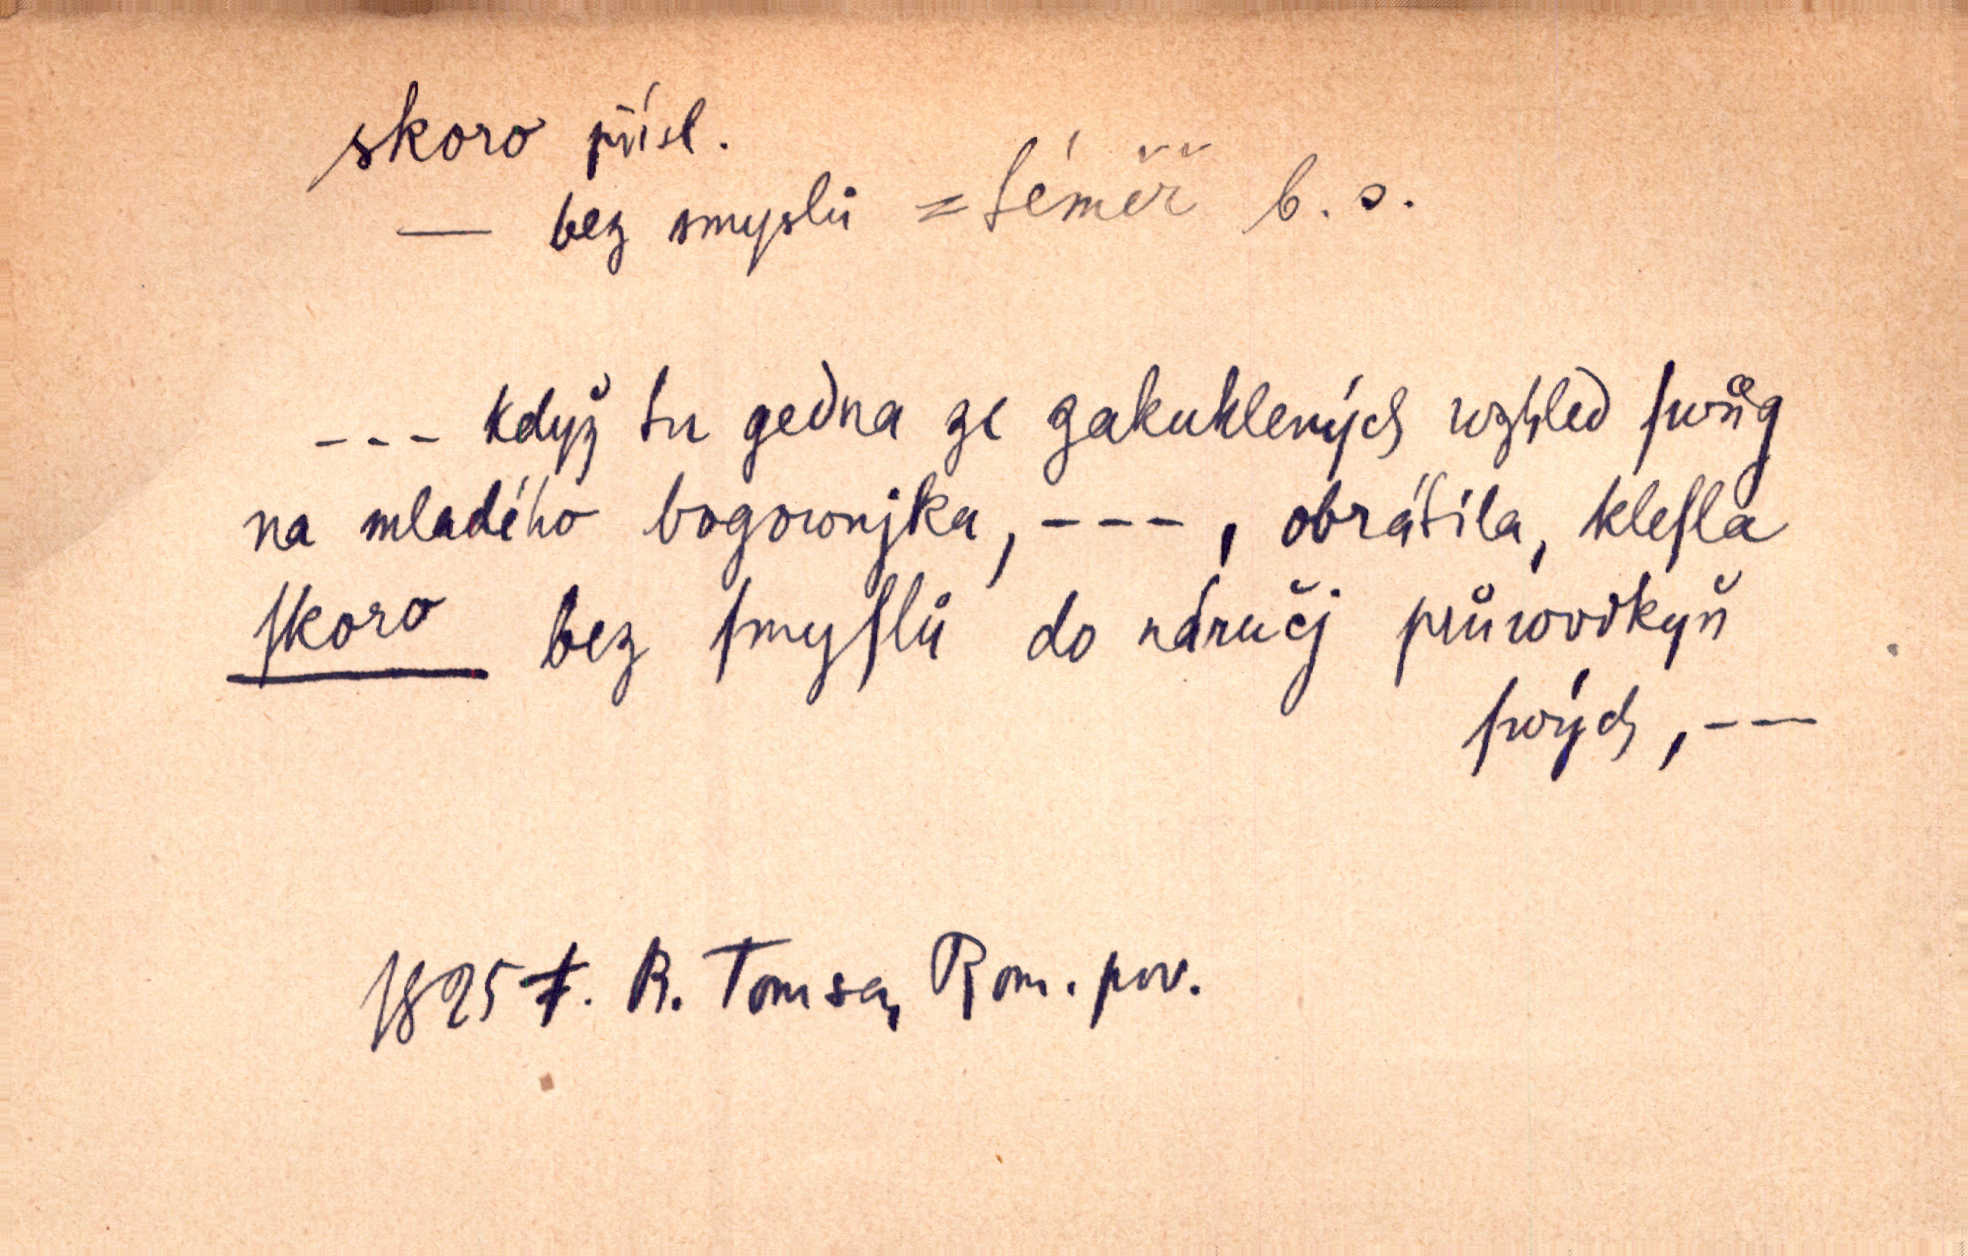 skoro přísl.
— bez smyslů = téměř b. s.
--- když tu gedna ze zakuklených wzhled ſwůg
na mladého bogownjka, ---, obrátila, kleſla
ſkoro bez ſmyſlů do náručj průwodkyň
ſwých, ---
1825 F. B. Tomsa, Rom. pov.